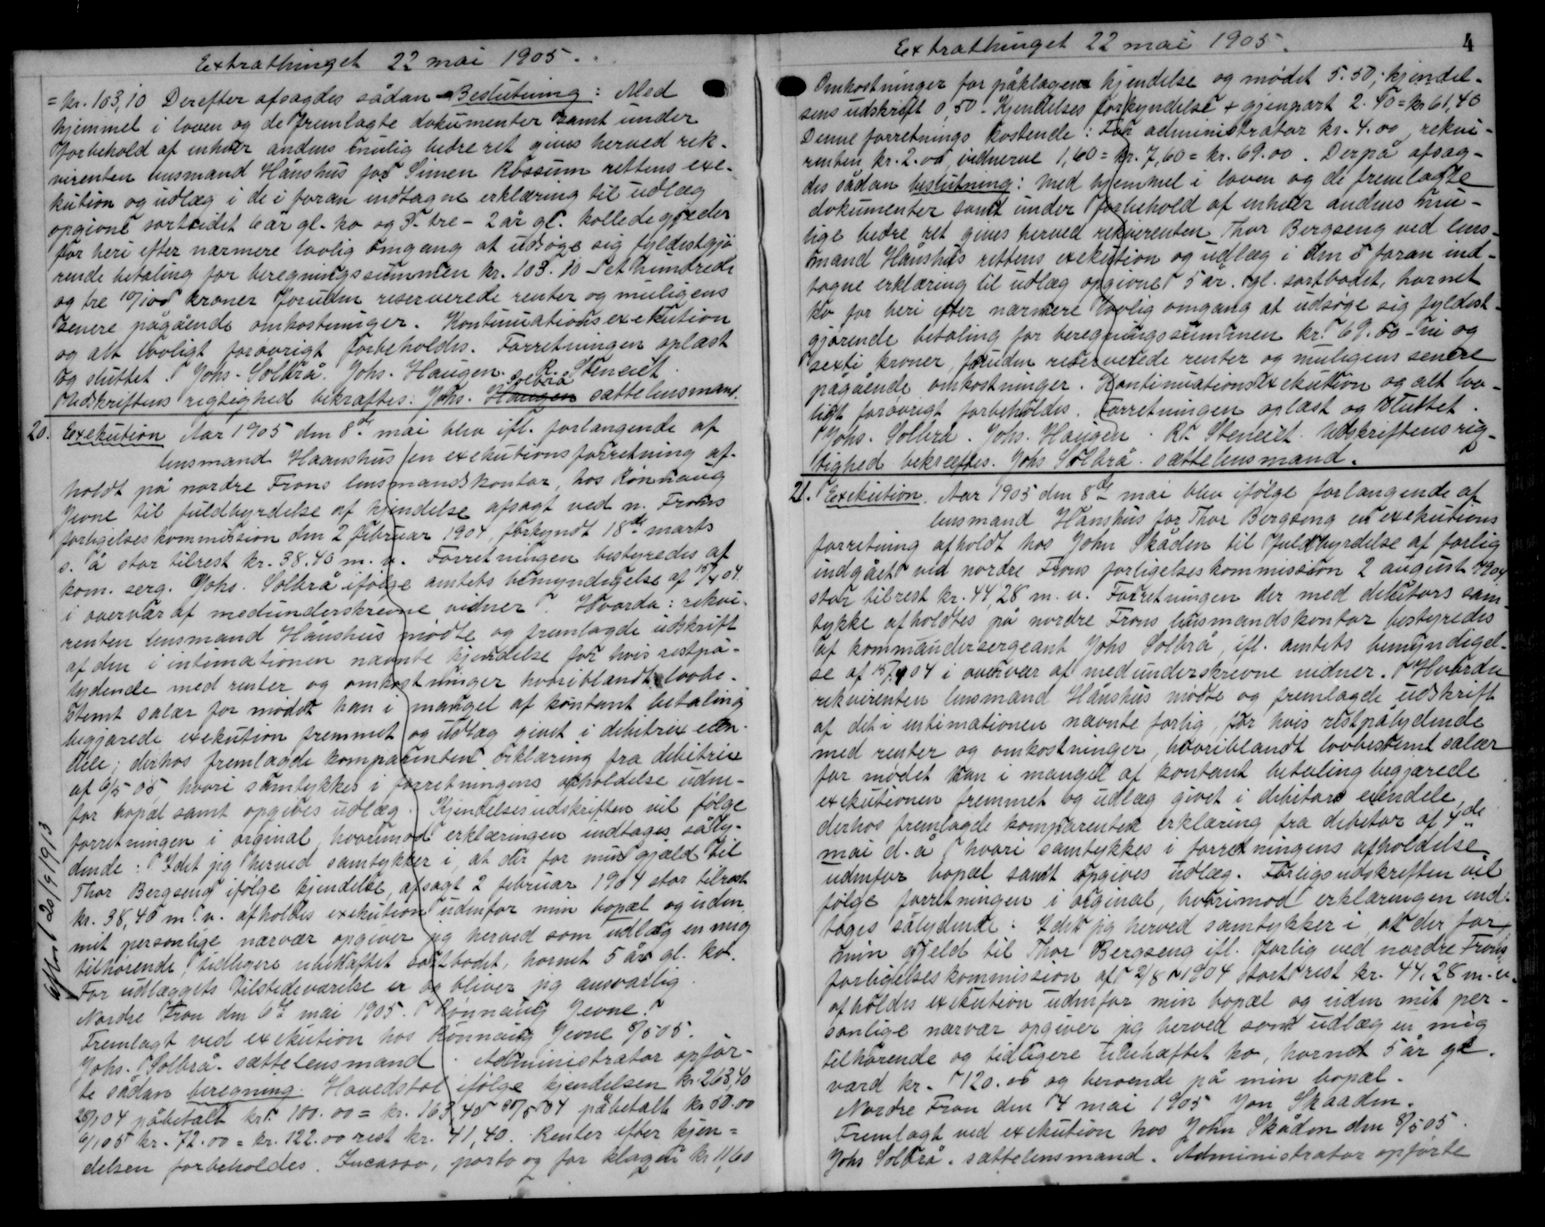 Extrathinget 22 mai 1905.
= kr. 103,10 Derefter afsagdes sådan Beslutning: Med
hjemmel i loven og de fremlagte dokumenter samt under
forbehold af enhver andens mulig bedre ret gives herved rek-
virenten lensmand Hånshus for Simen Rossum rettens exe-
kution og udlæg i de i foran indtagne erklæring til udlæg
opgivne sortsidet 6 år gl. ko og 3- tre - 2 år gl. kollede gjeder
for heri efter nærmere lovlig omgang at udsøge sig fyldestgjø
rende betaling for beregningssummen kr. 103.10 - Et hundrede
og tre 10/100 kroner foruden reserverede renter og muligens
senere pågående omkostninger. Kontinuationsexekution
og alt lovligt forøvrigt forbeholdes. Forretningen oplæst
og sluttet. Johs. Solbrå. Johs. Haugen. R. Steneit.
Udskriftens rigtighed bekræftes: Johs. Haugen Solbrå sættelensmand.
20. Exekution Aar 1905 den 8de mai blev ifl. forlangende af
lensmand Haanshus en exekutionsforretning af-
holdt på nordre Frons lensmandskontor, hos Rønnaug
Jevne til fuldbyrdelse af kjendelse afsagt ved n. Frons
forligelseskommission den 2 februar 1904, forkyndt 18de marts
s. å stor tilrest kr. 38.40 m. v. Forretningen bestyredes af
kom. serg. Johs. Solbrå ifølge amtets bemyndigelse af 15/7 04.
i overvær af medunderskrevne vidner. Hvorda: rekvi-
renten lensmand Hånshus mødte og fremlagde udskrift
af den i intimationen nævnte kjendelse for hvis restpå-
lydende med renter og omkostninger hvoriblandt lovbe-
stemt salær for mødet han i mangel af kontant betaling
begjærede exekution fremmet og udlæg givet i debitrix eien-
dele; derhos fremlagde komparenten erklæring fra debitrix
af 6/5 05 hvori samtykkes i forretningens afholdelse uden-
for bopæl samt opgives udlæg. Kjendelsesudskriften vil følge
forretningen i orginal, hvorimod erklæringen indtages såly-
dende: Idet jeg herved samtykker i, at der for min gjæld til
Thor Bergseng ifølge kjendelse, afsagt 2 februar 1904 stor tilrest
kr. 38,40 m. v. afholdes exekution udenfor min bopæl og uden
mit personlige nærvær opgiver jeg herved som udlæg en mig
tilhørende, tidligere ubehæftet sortbodet, hornet 5 år gl. ko.
For udlæggets tilstedeværelse er og bliver jeg ansvarlig.
Nordre Fron den 6te mai 1905. Rønnaug Jevne.
Fremlagt ved exekution hos Rønnaug Jevne 8/5 05.
Johs. Solbrå. sættelensmand. Administrator opfør-
te sådan beregning. Hovedstol ifølge kjendelsen kr. 263,40
påbetalt kr. 100.00 = kr. 163,40 påbetalt kr. 50.00
kr. 72.00 = kr. 122.00 rest kr. 41,40. Renter efter kjen=
delsen forbeholdes. Incasso, porto og for klagen kr. 11,60
aflæst 20/9 1913
Extrathinget 22 mai 1905.
4
Omkostninger for påklagen kjendelse og mødet 5.50; kjendel-
sens udskrift 0,50. Kjendelses forkyndelse + gjenpart 2.40 = kr 61,40
Denne forretnings kostende: For administrator kr. 4.00, rekvi-
renten kr. 2.00, vidnerne 1,60 = kr. 7,60 = kr. 69.00. Derpå afsag-
des sådan beslutning: Med hjemmel i loven og de fremlagte
dokumenter samt under forbehold af enhver andens mu-
lige bedre ret gives herved rekvirenten Thor Bergseng ved lens-
mand Hånshus rettens exekution og udlæg i den i foran ind-
tagne erklæring til udlæg opgivne 5 år. gl. sortbodet, hornet
ko for heri efter nærmere lovlig omgang at udsøge sig fyldest-
gjørende betaling for beregningssummen kr. 69.00 - ni og
sexti kroner, foruden reserverede renter og muligens senere
pågående omkostninger. Kontinuationsexekution og alt lov-
ligt forøvrigt forbeholdes. Forretningen oplæst og sluttet.
Johs. Solbrå. Johs. Haugen. R. Steneit. Udskriftens rig-
tighed bekræftes. Johs Solbrå. sættelensmand.
21. Exekution. Aar 1905 den 8de mai blev ifølge forlangende af
lensmand Hånshus for Thor Bergseng en exekutions
forretning afholdt hos John Skåden til fuldbyrdelse af forlig
indgået ved nordre Frons forligelseskommission 2 august 1904
stor tilrest kr. 44,28 m. v. Forretningen der med debitors sam-
tykke afholdtes på nordre Frons lensmandskontor bestyredes
af kommandersergeant Johs Solbrå, ifl. amtets bemyndigel-
se af 15/7 04 i overvær af medunderskrevne vidner. Hvorda
rekvirenten lensmand Hånshus mødte og fremlagde udskrift
af det i intimationen nævnte forlig, for hvis restpålydende
med renter og omkostninger, hvoriblandt lovbestemt salær
for mødet han i mangel af kontant betaling begjærede
exekutionen fremmet og udlæg givet i debitors eiendele,
derhos fremlagde komparenten erklæring fra debitor af 4de
mai d. å. hvori samtykkes i forretningens afholdelse
udenfor bopæl samt opgives udlæg. Forligsudskriften vil
følge forretningen i orginal, hvorimod erklæringen ind-
tages sålydende: Idet jeg herved samtykker i, at der for
min gjeld til Thor Bergseng ifl. forlig ved nordre Frons
forligelseskommission af 2/8 1904 stort rest kr. 44,28 m. v.
afholdes exekution udenfor min bopæl og uden mit per-
sonlige nærvær opgiver jeg herved som udlæg en mig
tilhørende og tidligere ubehæftet ko, hornet 5 år gl.
værd kr. 120.00 og beroende på min bopæl.
Nordre Fron den 4 mai 1905 Jon Skaaden.
Fremlagt ved exekution hos John Skåden den 8/5 05.
Johs Solbrå. sættelensmand. Administrator opførte